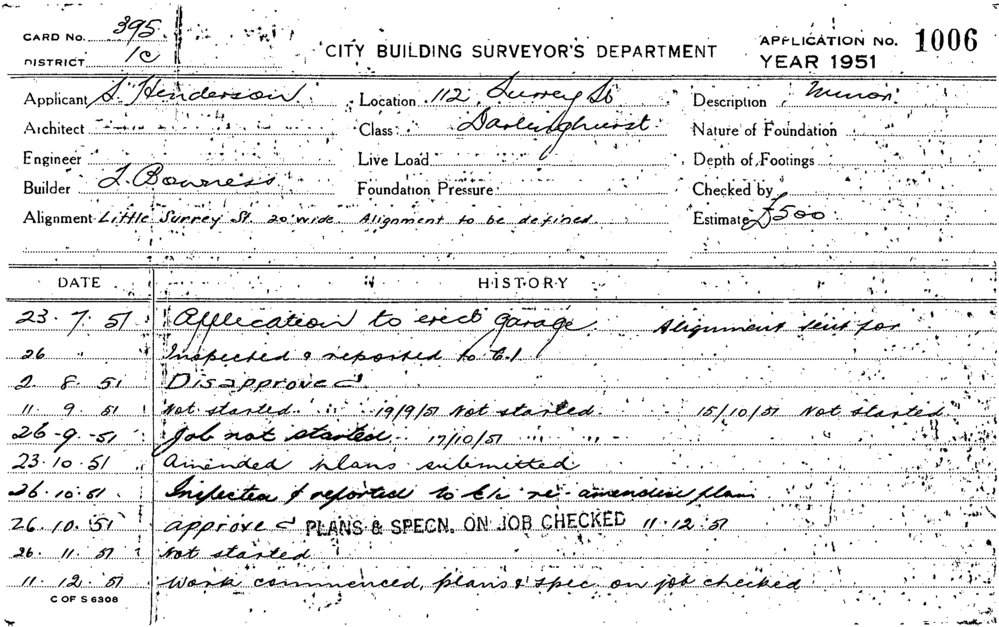 CARD No. 395
DISTRICT 1c
CITY BUILDING SURVEYOR'S DEPARTMENT
APPLICATION No. 1006
YEAR 1951
Applicant S. Henderson Location 112 Surrey St Description Minor
Architect Class Darlinghurst Nature of Foundation
Engineer Live Load Depth of Footings
Builder L. Bowness Foundation Pressure Checked by
Alignment Little Surrey St. 20' wide. Alignment to be defined Estimate £500
DATE HISTORY
23.7.51 Application to erect garage Alignment sent for
26 " " Inspected & reported to
2.8.51 Disapproved
11.9.51 Not started. 19/9/51 Not started. 15/10/51 Not started
26-9-51 Job not started. 17/10/51 " "
23.10.51 Amended plans submitted
26.10.51 Inspected & reported to re amended plan
26.10.51 approved PLANS & SPECN. ON JOB CHECKED 11.12.51
26.11.51 Not started
11.12.51 Work commenced, plans & spec on job checked
C OF S 6308